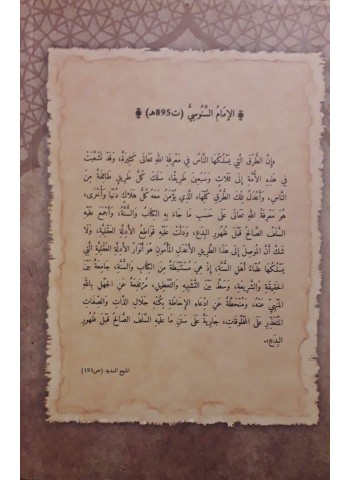 الإمَامُ السَّنُوسِيُّ (ت895هـ)
«إنَّ الطُّرُقَ الَّتِي يَسْلُكُهَا النَّاسُ فِي مَعْرِفَةِ اللهِ تَعَالَى كَثِيرَةٌ، وَقَدْ تَشَعَّبَتْ
فِي هَذِهِ الأُمَّةِ إِلَى ثَلَاثٍ وَسَبْعِينَ طَرِيقًا، سَلَكَ كُلَّ طَرِيقٍ طَائِفَةٌ مِنَ
النَّاسِ، وَأَعْدَلُ تِلْكَ الطُّرُقِ كُلِّهَا، الَّذِي يُؤْمَنُ مَعَهُ كُلُّ هَلَاكٍ دُنْيَا وَأُخْرَى،
هُوَ مَعْرِفَةُ اللهِ تَعَالَى عَلَى حَسَبِ مَا جَاءَ بِهِ الكِتَابُ وَالسُّنَّةُ، وَأَجْمَعَ عَلَيْهِ
السَّلَفُ الصَّالِحُ قَبْلَ ظُهُورِ البِدَعِ، وَدَلَّتْ عَلَيْهِ قَوَاطِعُ الأَدِلَّةِ العَقْلِيَّةِ، وَلَا
شَكَّ أَنَّ المُوصِلَ إِلَى هَذَا الطَّرِيقِ الأَعْدَلِ المَأْمُونِ هُوَ أَنْوَارُ الأَدِلَّةِ العَقْلِيَّةِ الَّتِي
يَسْلُكُهَا عُلَمَاءُ أَهْلِ السُّنَّةِ، إِذْ هِيَ مُسْتَنْبَطَةٌ مِنَ الكِتَابِ وَالسُّنَّةِ، جَامِعَةٌ بَيْنَ
الحَقِيقَةِ وَالشَّرِيعَةِ، وَسَطٌ بَيْنَ التَّشْبِيهِ وَالتَّعْطِيلِ، مُرْتَفِعَةٌ عَنِ الجَهْلِ بِاللهِ
المَنْهِيِّ عَنْهُ، وَمُنْحَطَّةٌ عَنِ ادِّعَاءِ الإِحَاطَةِ بِكُنْهِ جَلَالِ الذَّاتِ وَالصِّفَاتِ
المُتَعَذِّرِ عَلَى المَخْلُوقَاتِ، جَارِيَةٌ عَلَى سَنَنِ مَا عَلَيْهِ السَّلَفُ الصَّالِحُ قَبْلَ ظُهُورِ
البِدَعِ».
المنهج السديد (ص103)